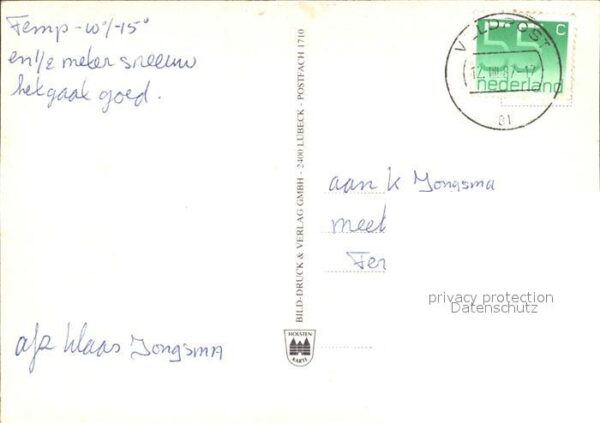 Temp -10°/-15°
en 1/2 meter sneeuw
het gaat goed.
afz Klaas Jongsma
BILD-DRUCK & VERLAG GMBH - 2400 LÜBECK - POSTFACH 1710
HOLSTEN
KARTE
VELDPOST
12 III 87-17
01
55 c
nederland
aan K Jongsma
privacy protection
Datenschutz